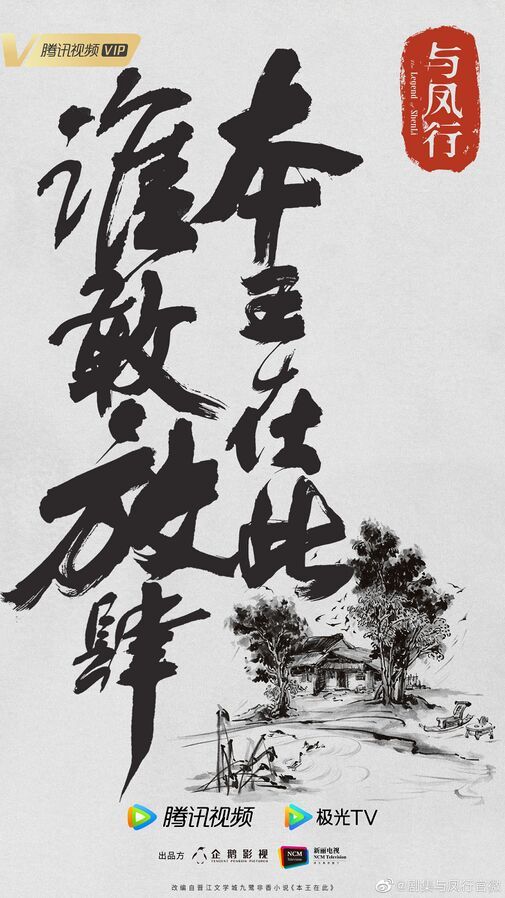 腾讯视频VIP
与凤行
The Legend of ShenLi
本王在此
谁敢放肆
腾讯视频
极光TV
出品方
企鹅影视
TENCENT PENGUIN PICTURES
NCM
Television
新丽电视
NCM Television
改编自晋江文学城九鹭非香小说《本王在此》
@剧集与凤行官微